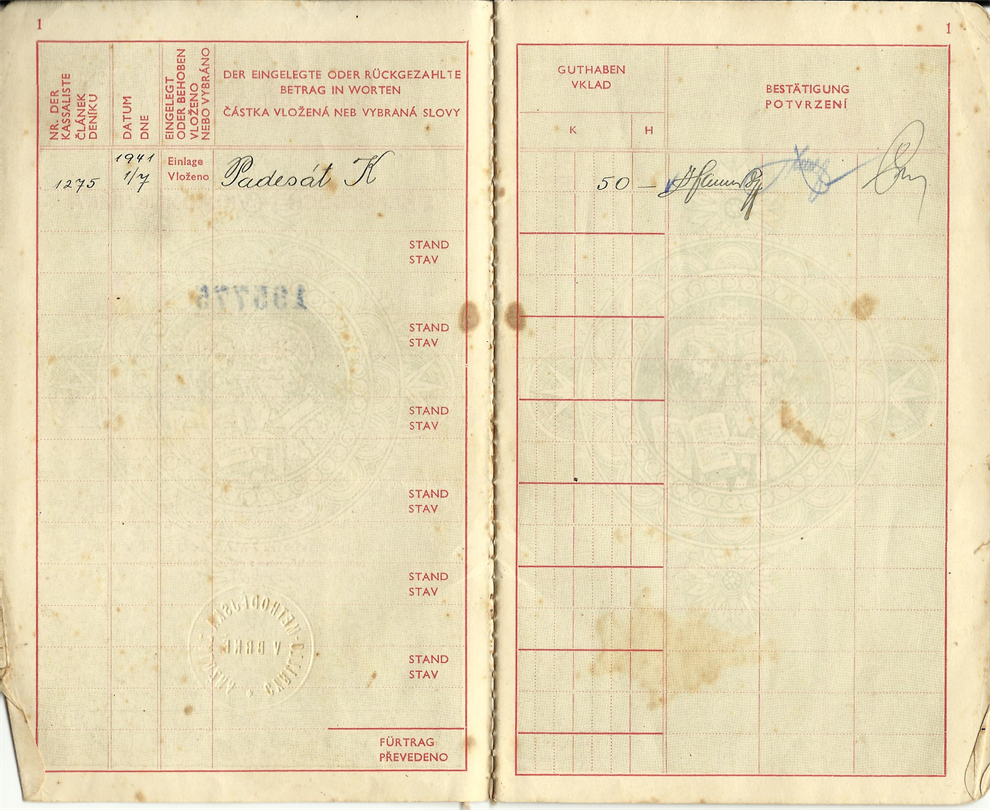 1
NR. DER
KASSALISTE
ČLÁNEK
DENÍKU
DATUM
DNE
EINGELEGT
ODER BEHOBEN
VLOŽENO
NEBO VYBRÁNO
DER EINGELEGTE ODER RÜCKGEZAHLTE
BETRAG IN WORTEN
ČÁSTKA VLOŽENÁ NEB VYBRANÁ SLOVY
1275
1941
1/7
Einlage
Vloženo
Padesát K
STAND
STAV
195775
STAND
STAV
STAND
STAV
STAND
STAV
STAND
STAV
STAND
STAV
FÜRTRAG
PŘEVEDENO
1
GUTHABEN
VKLAD
K H
BESTÄTIGUNG
POTVRZENÍ
50 —